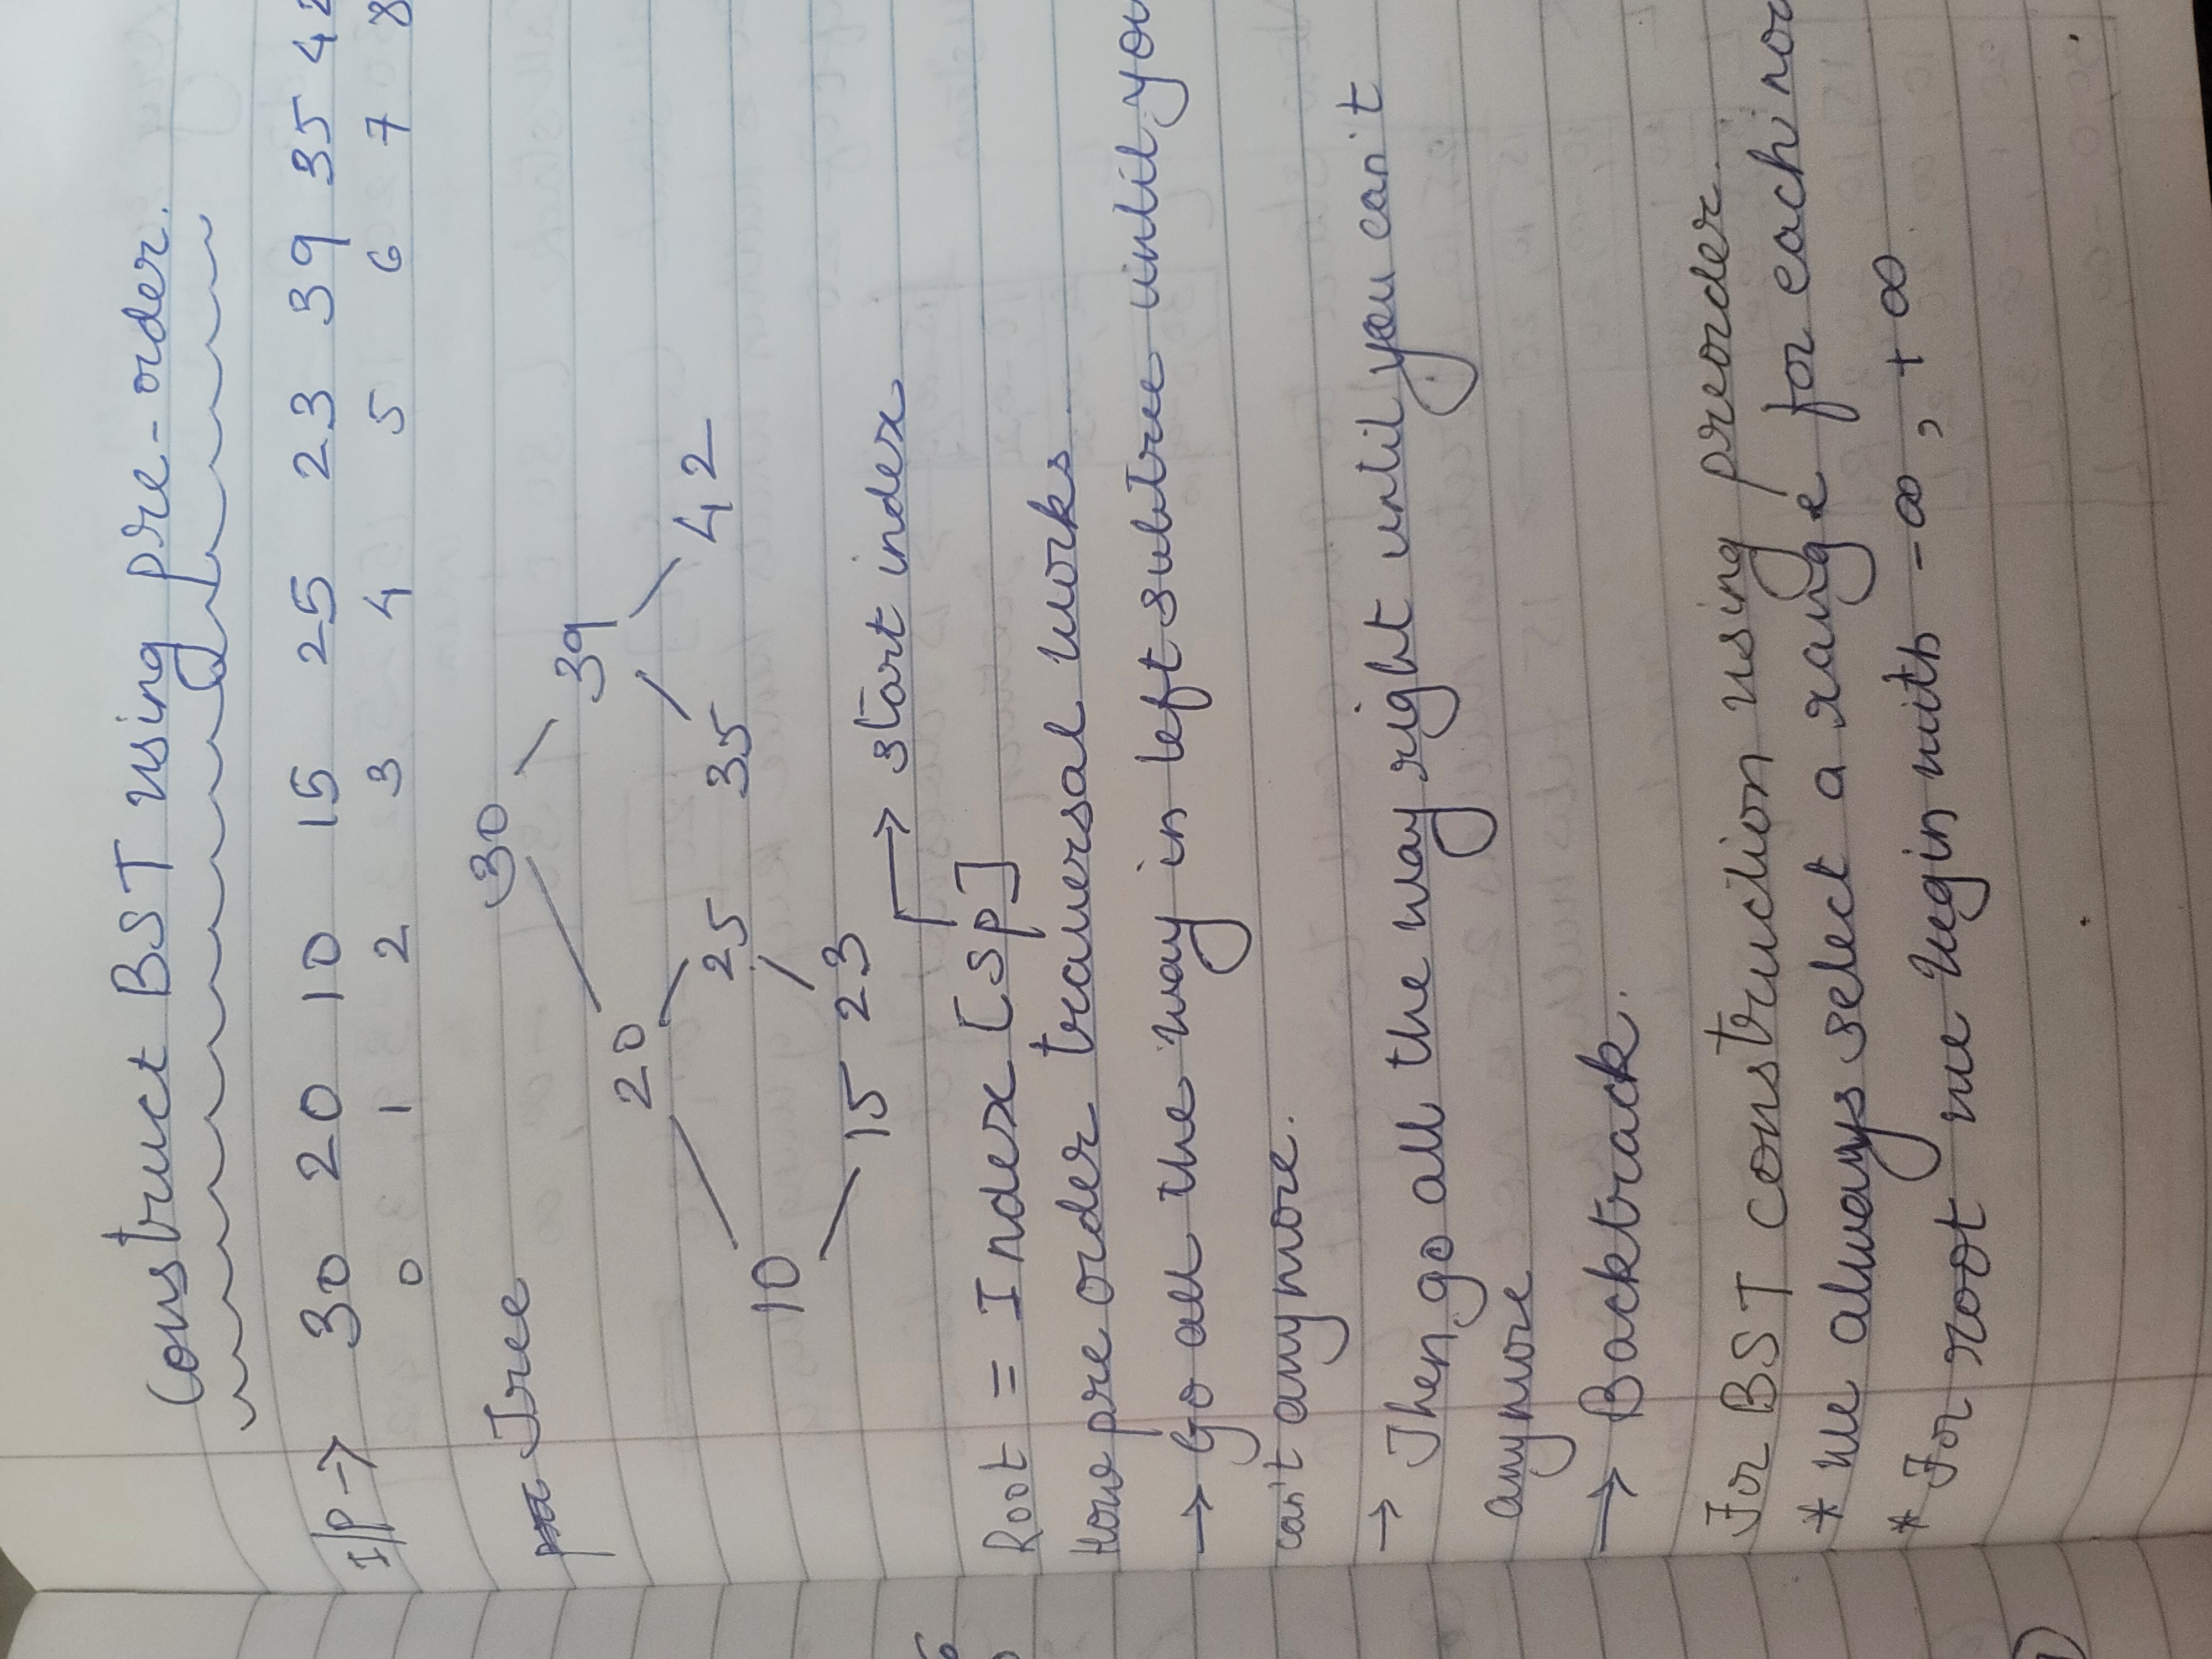 Construct BST using pre-order.
I/P → 30 20 10 15 25 23 39 35 42
0 1 2 3 4 5 6 7 8
Tree
30
39
20
42
25
35
10
15 23
→ start index
Root = Index [sp]
How pre order traversal works.
→ Go all the way in left subtree until you
can't anymore.
→ Then go all the way right until you can't
anymore
→ Backtrack.
For BST construction using preorder.
* we always select a range for each
* For root we begin with -∞, +∞